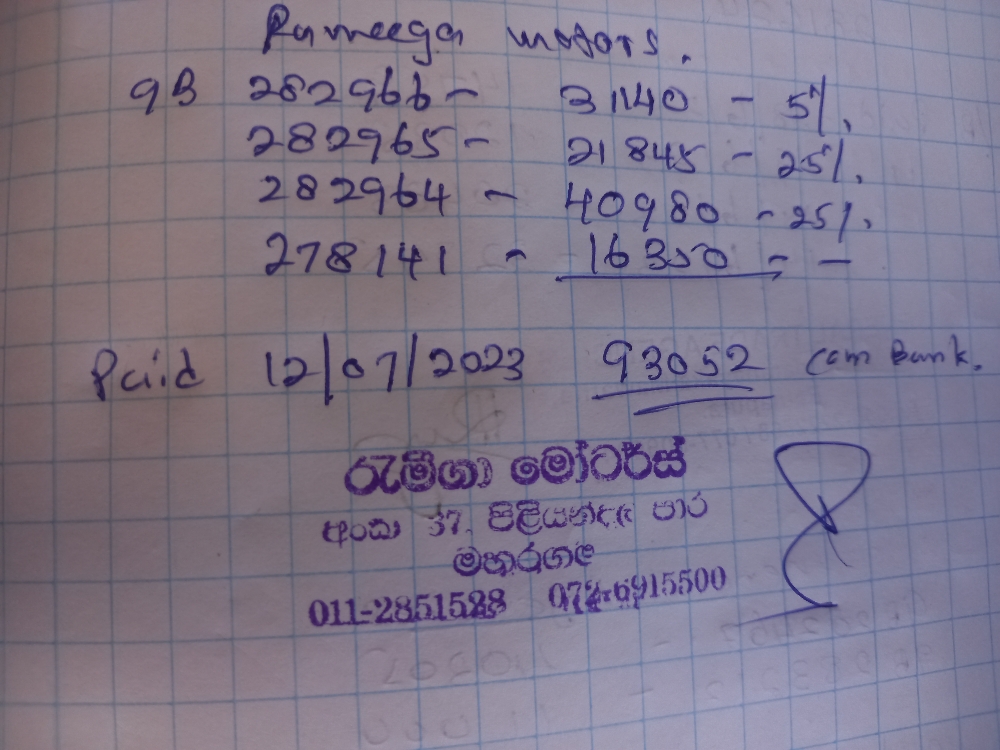 Rameega motors.
9B 282966 - 31140 - 5%.
282965 - 21845 - 25%.
282964 - 40980 - 25%.
278141 - 16350 - -
Paid 12/07/2023 93052 Com Bank.
රැමීගා මෝටර්ස්
අංක 37, පිළියන්දල පාර
මහරගම
011-2851528 072-6915500